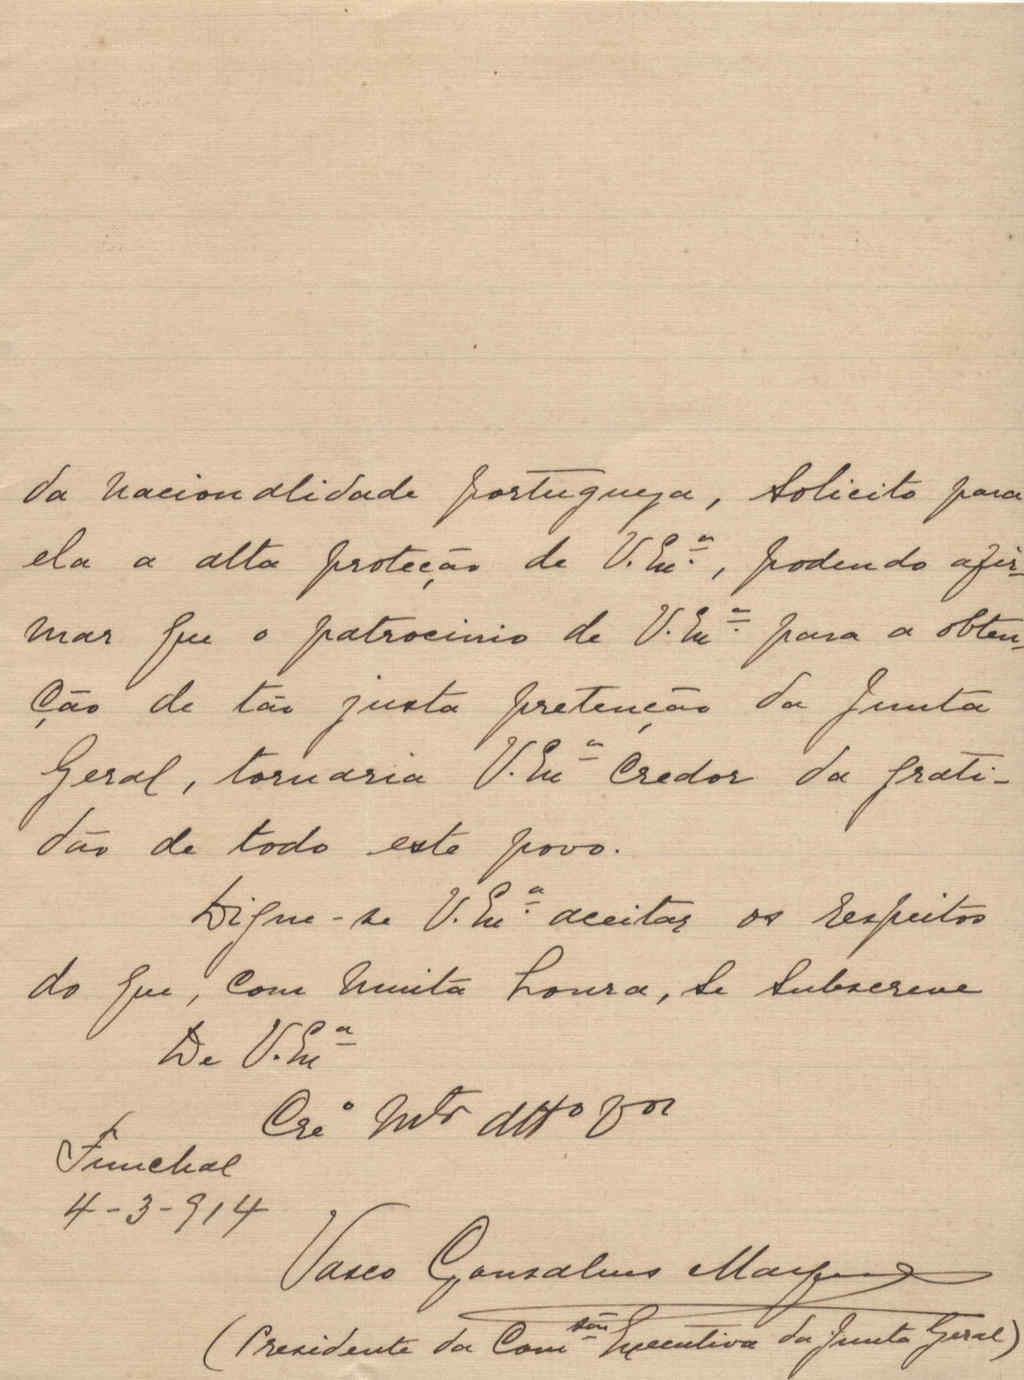 da nacionalidade portugueza, solicito para
ela a alta proteção de V. Exª., podendo afir-
mar que o patrocinio de V. Exª. para a obten-
ção de tão justa pretenção da Junta
Geral, tornaria V. Exª credor da grati-
dão de todo este povo.
Digne-se V. Exª. aceitar os respeitos
do que, com muita honra, se subscreve
De V. Exª
Creº Mto Attº Vor
Funchal
4-3-914
Vasco Gonsalves Marques
(Presidente da Comsão Executiva da Junta Geral)